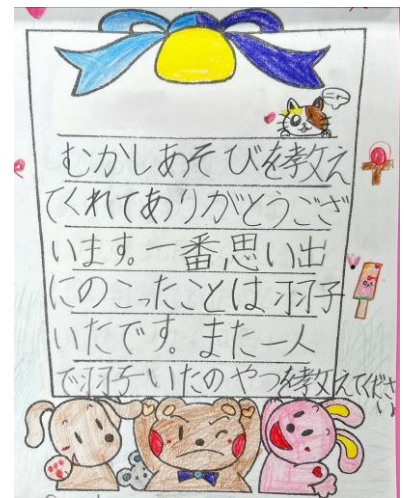 むかしあそびを教え
てくれてありがとうござ
います。一番思い出
にのこったことは羽子
いたです。また一人
で羽子いたのやつを教えてくださ
い